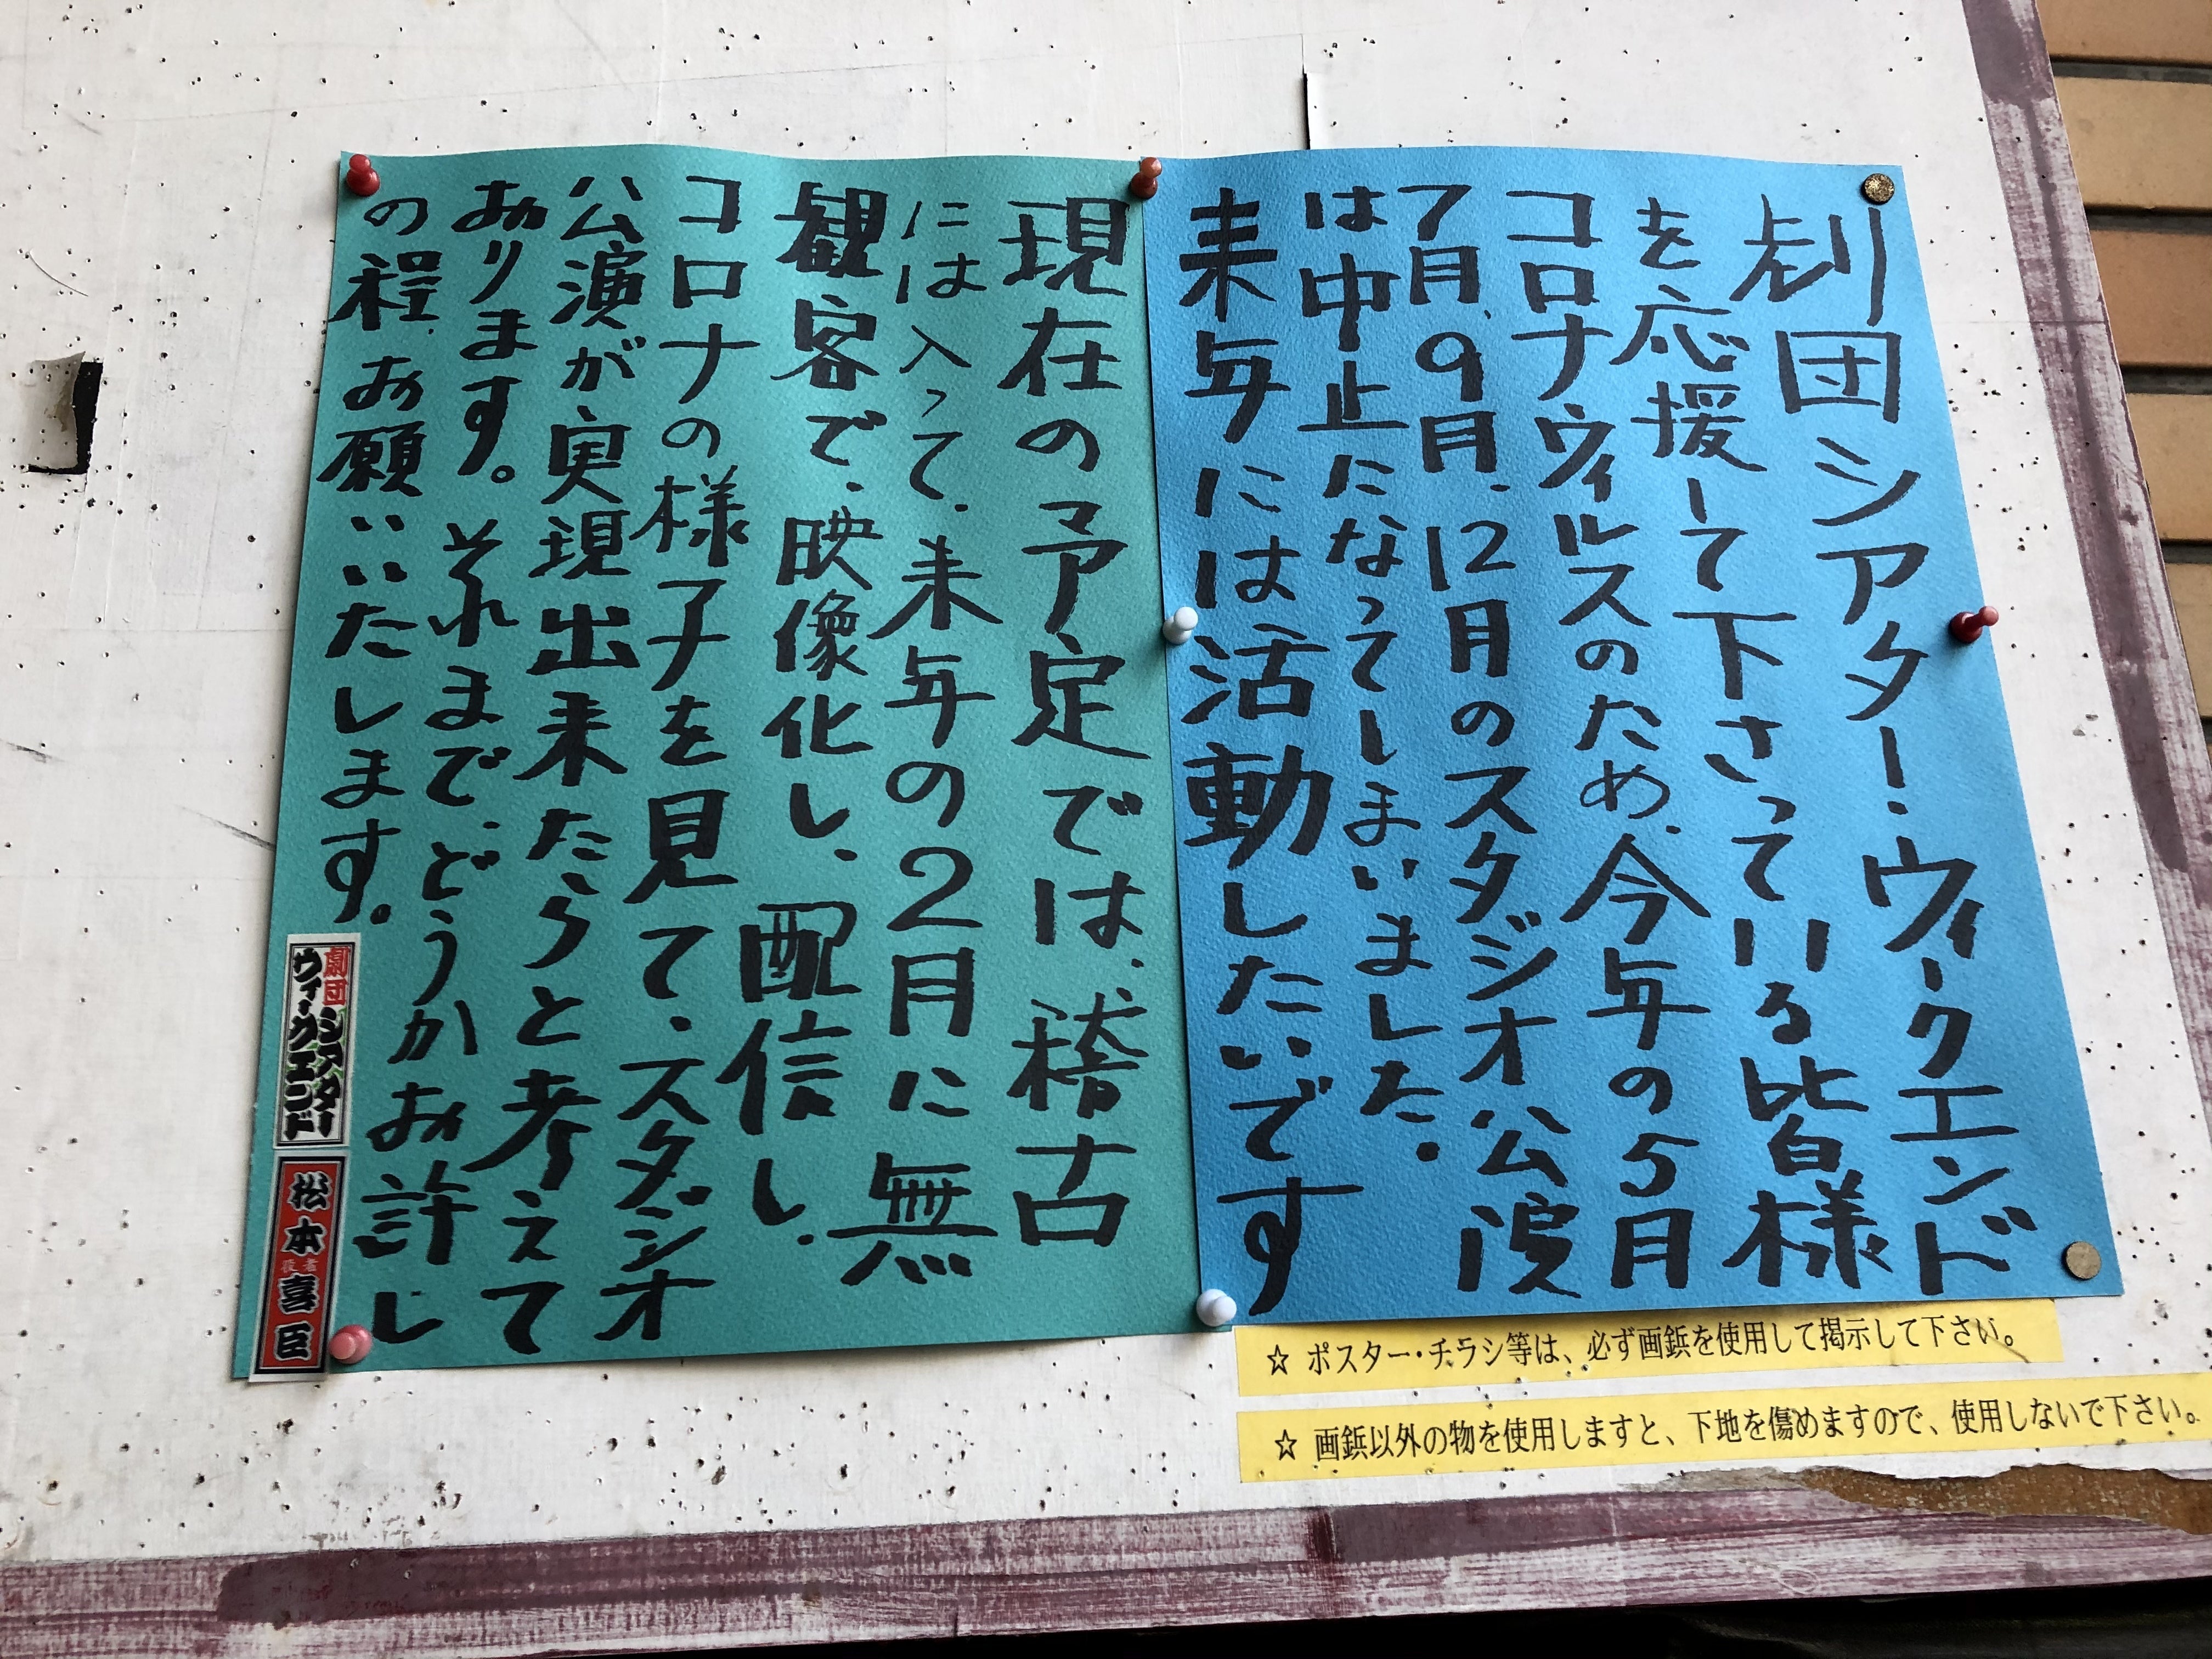 劇団シアター・ウィークエンド
を応援して下さっている皆様
コロナウィルスのため、今年の5月
7月、9月、12月のスタジオ公演
は中止になってしまいました。
来年には活動したいです
現在の予定では、稽古
には入って、来年の2月に無
観客で、映像化し、配信し、
コロナの様子を見て、スタジオ
公演が実現出来たらと考えて
おります。それまで、どうかお許し
の程、お願いいたします。
劇団シアター
ウィークエンド
役者
松本喜臣
☆ ポスター・チラシ等は、必ず画鋲を使用して掲示して下さい。
☆ 画鋲以外の物を使用しますと、下地を傷めますので、使用しないで下さい。